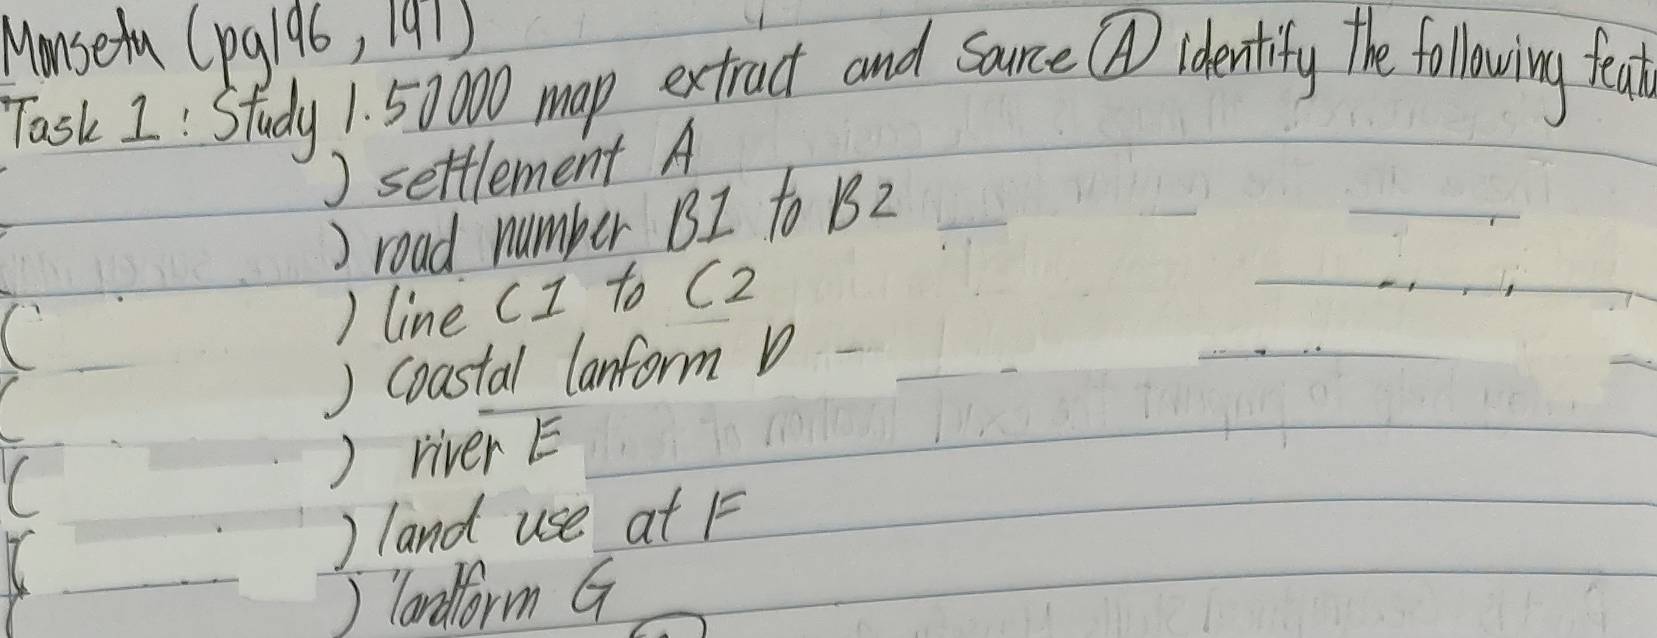 Monsetu (pg196, 197)
Task 1: Study 1.50000 map extract and Source Ⓐ identify the following featu
) settlement A
) road number B1 to B2
( ) line C1 to C2
( ) coastal lanform D
( ) river E
( ) land use at F
( ) landform G